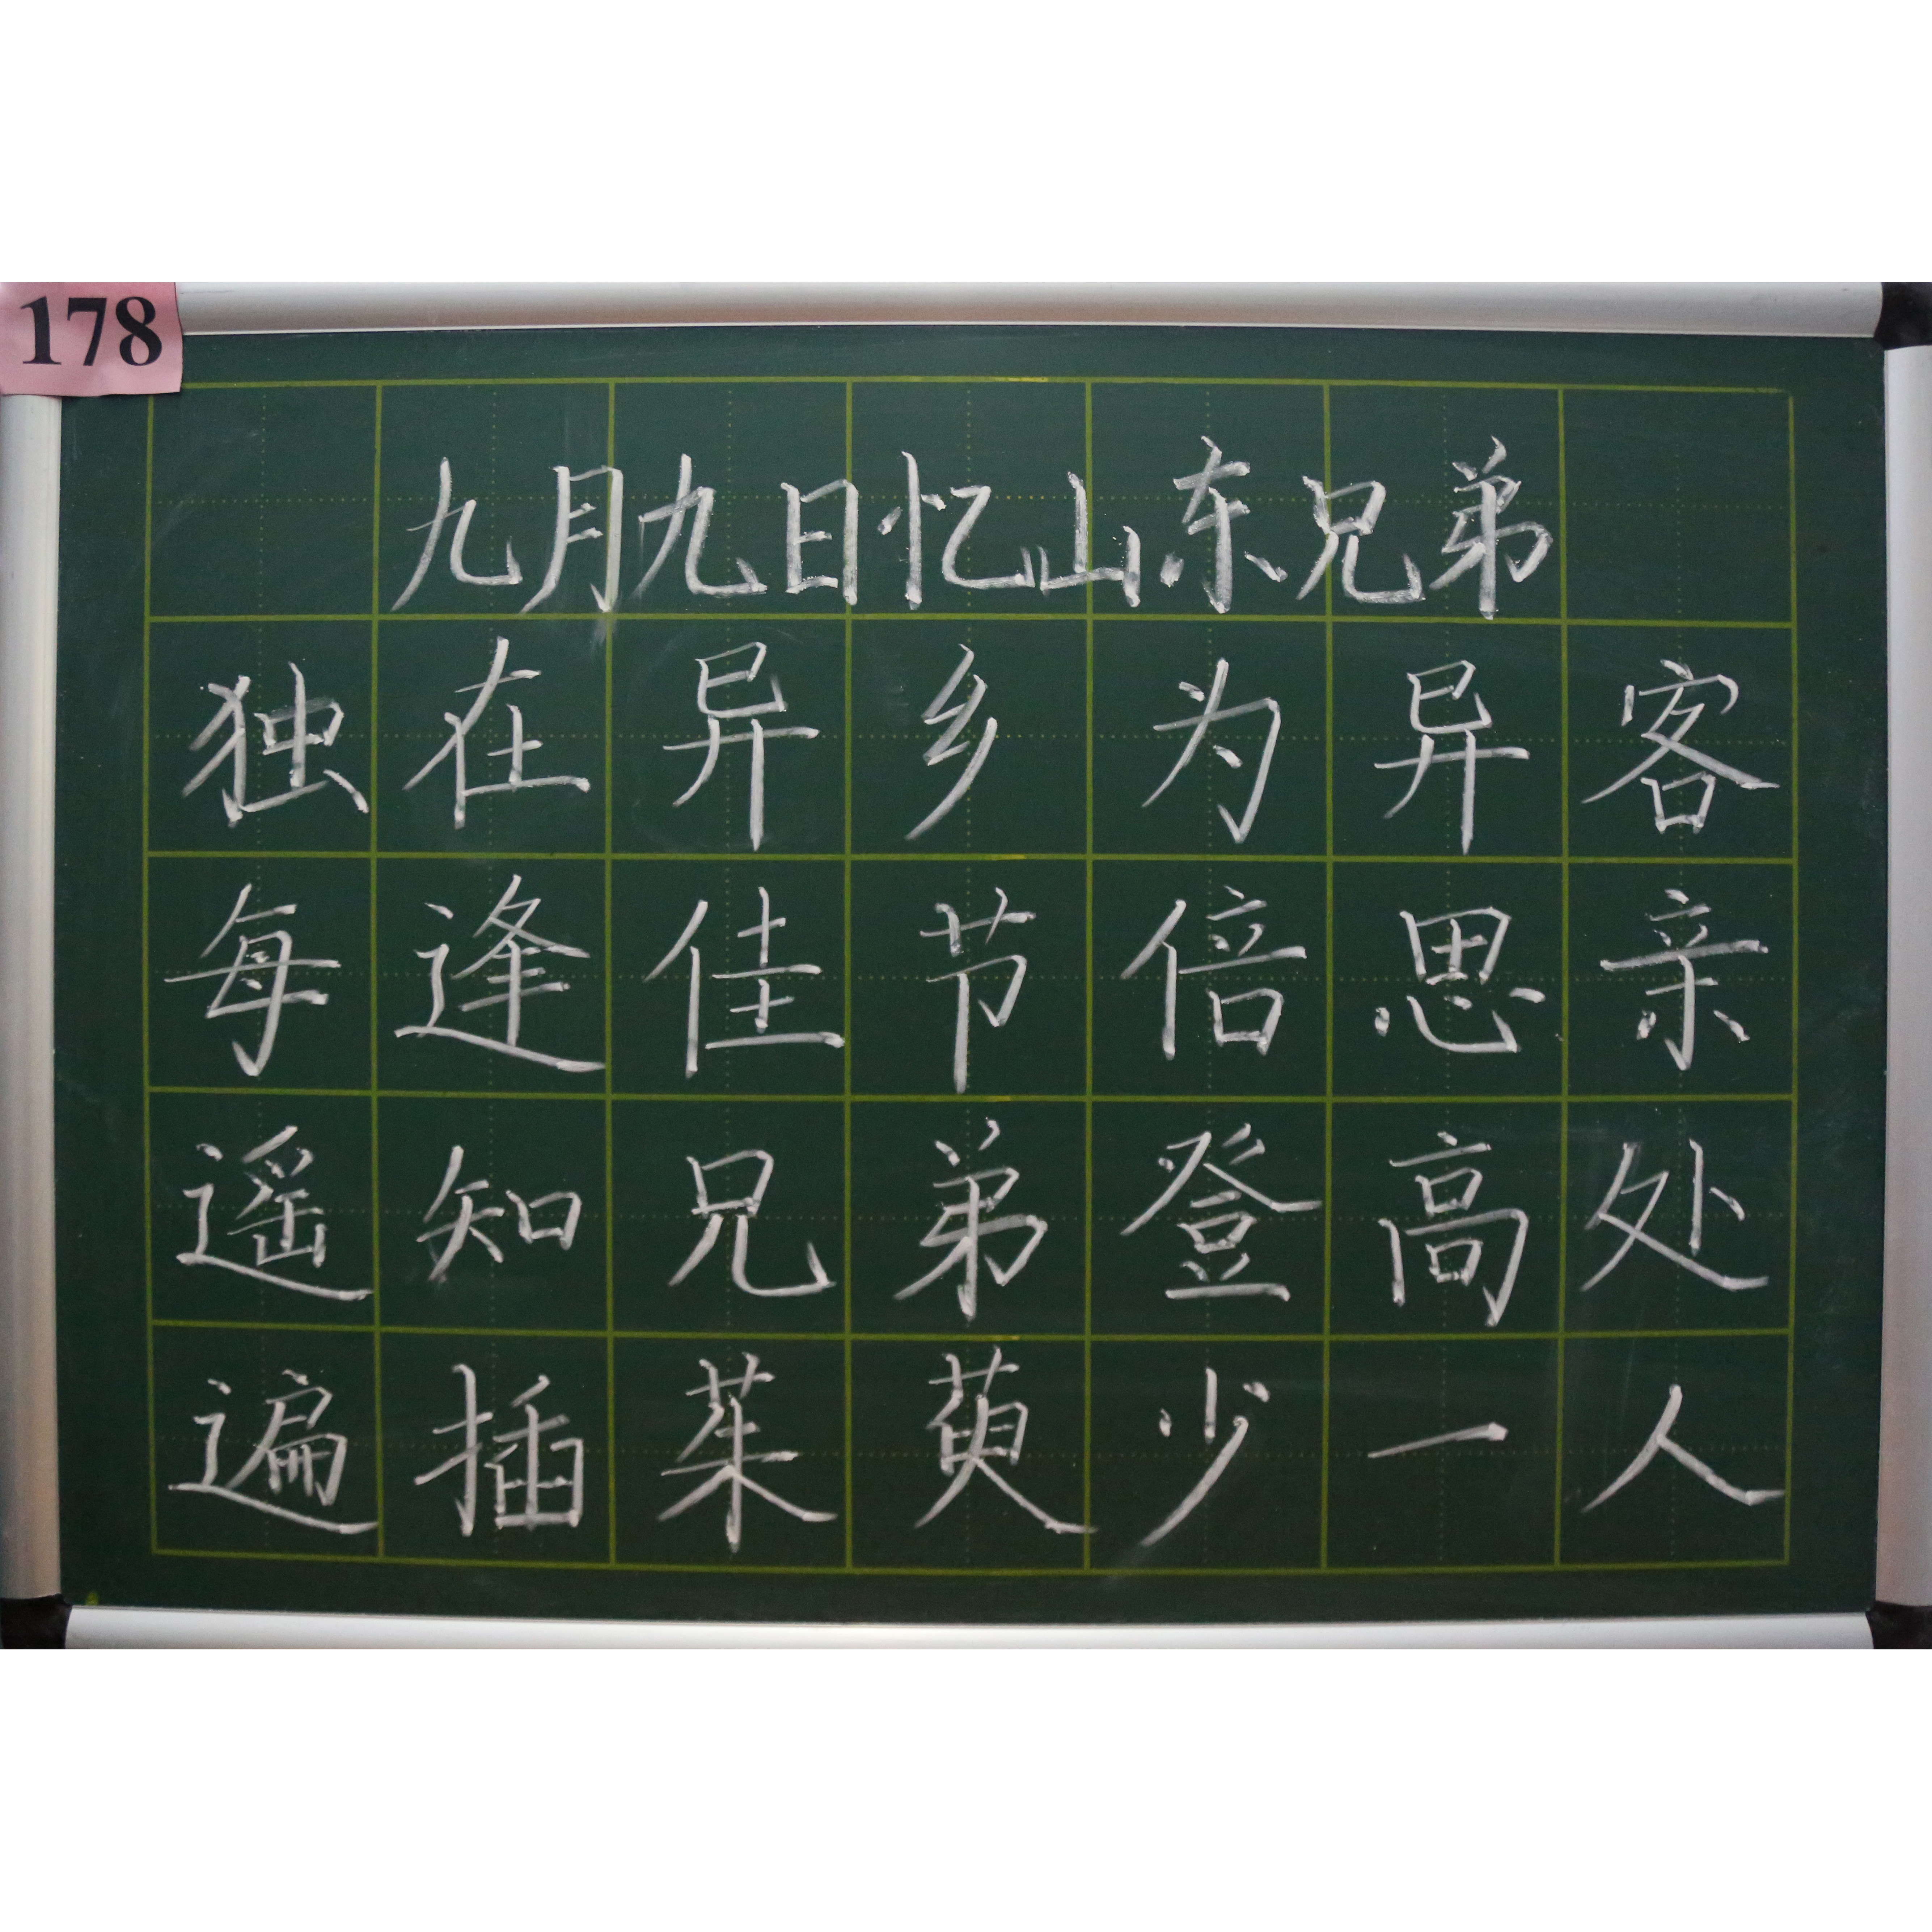 178
九月九日忆山东兄弟
独在异乡为异客
每逢佳节倍思亲
遥知兄弟登高处
遍插茱萸少一人